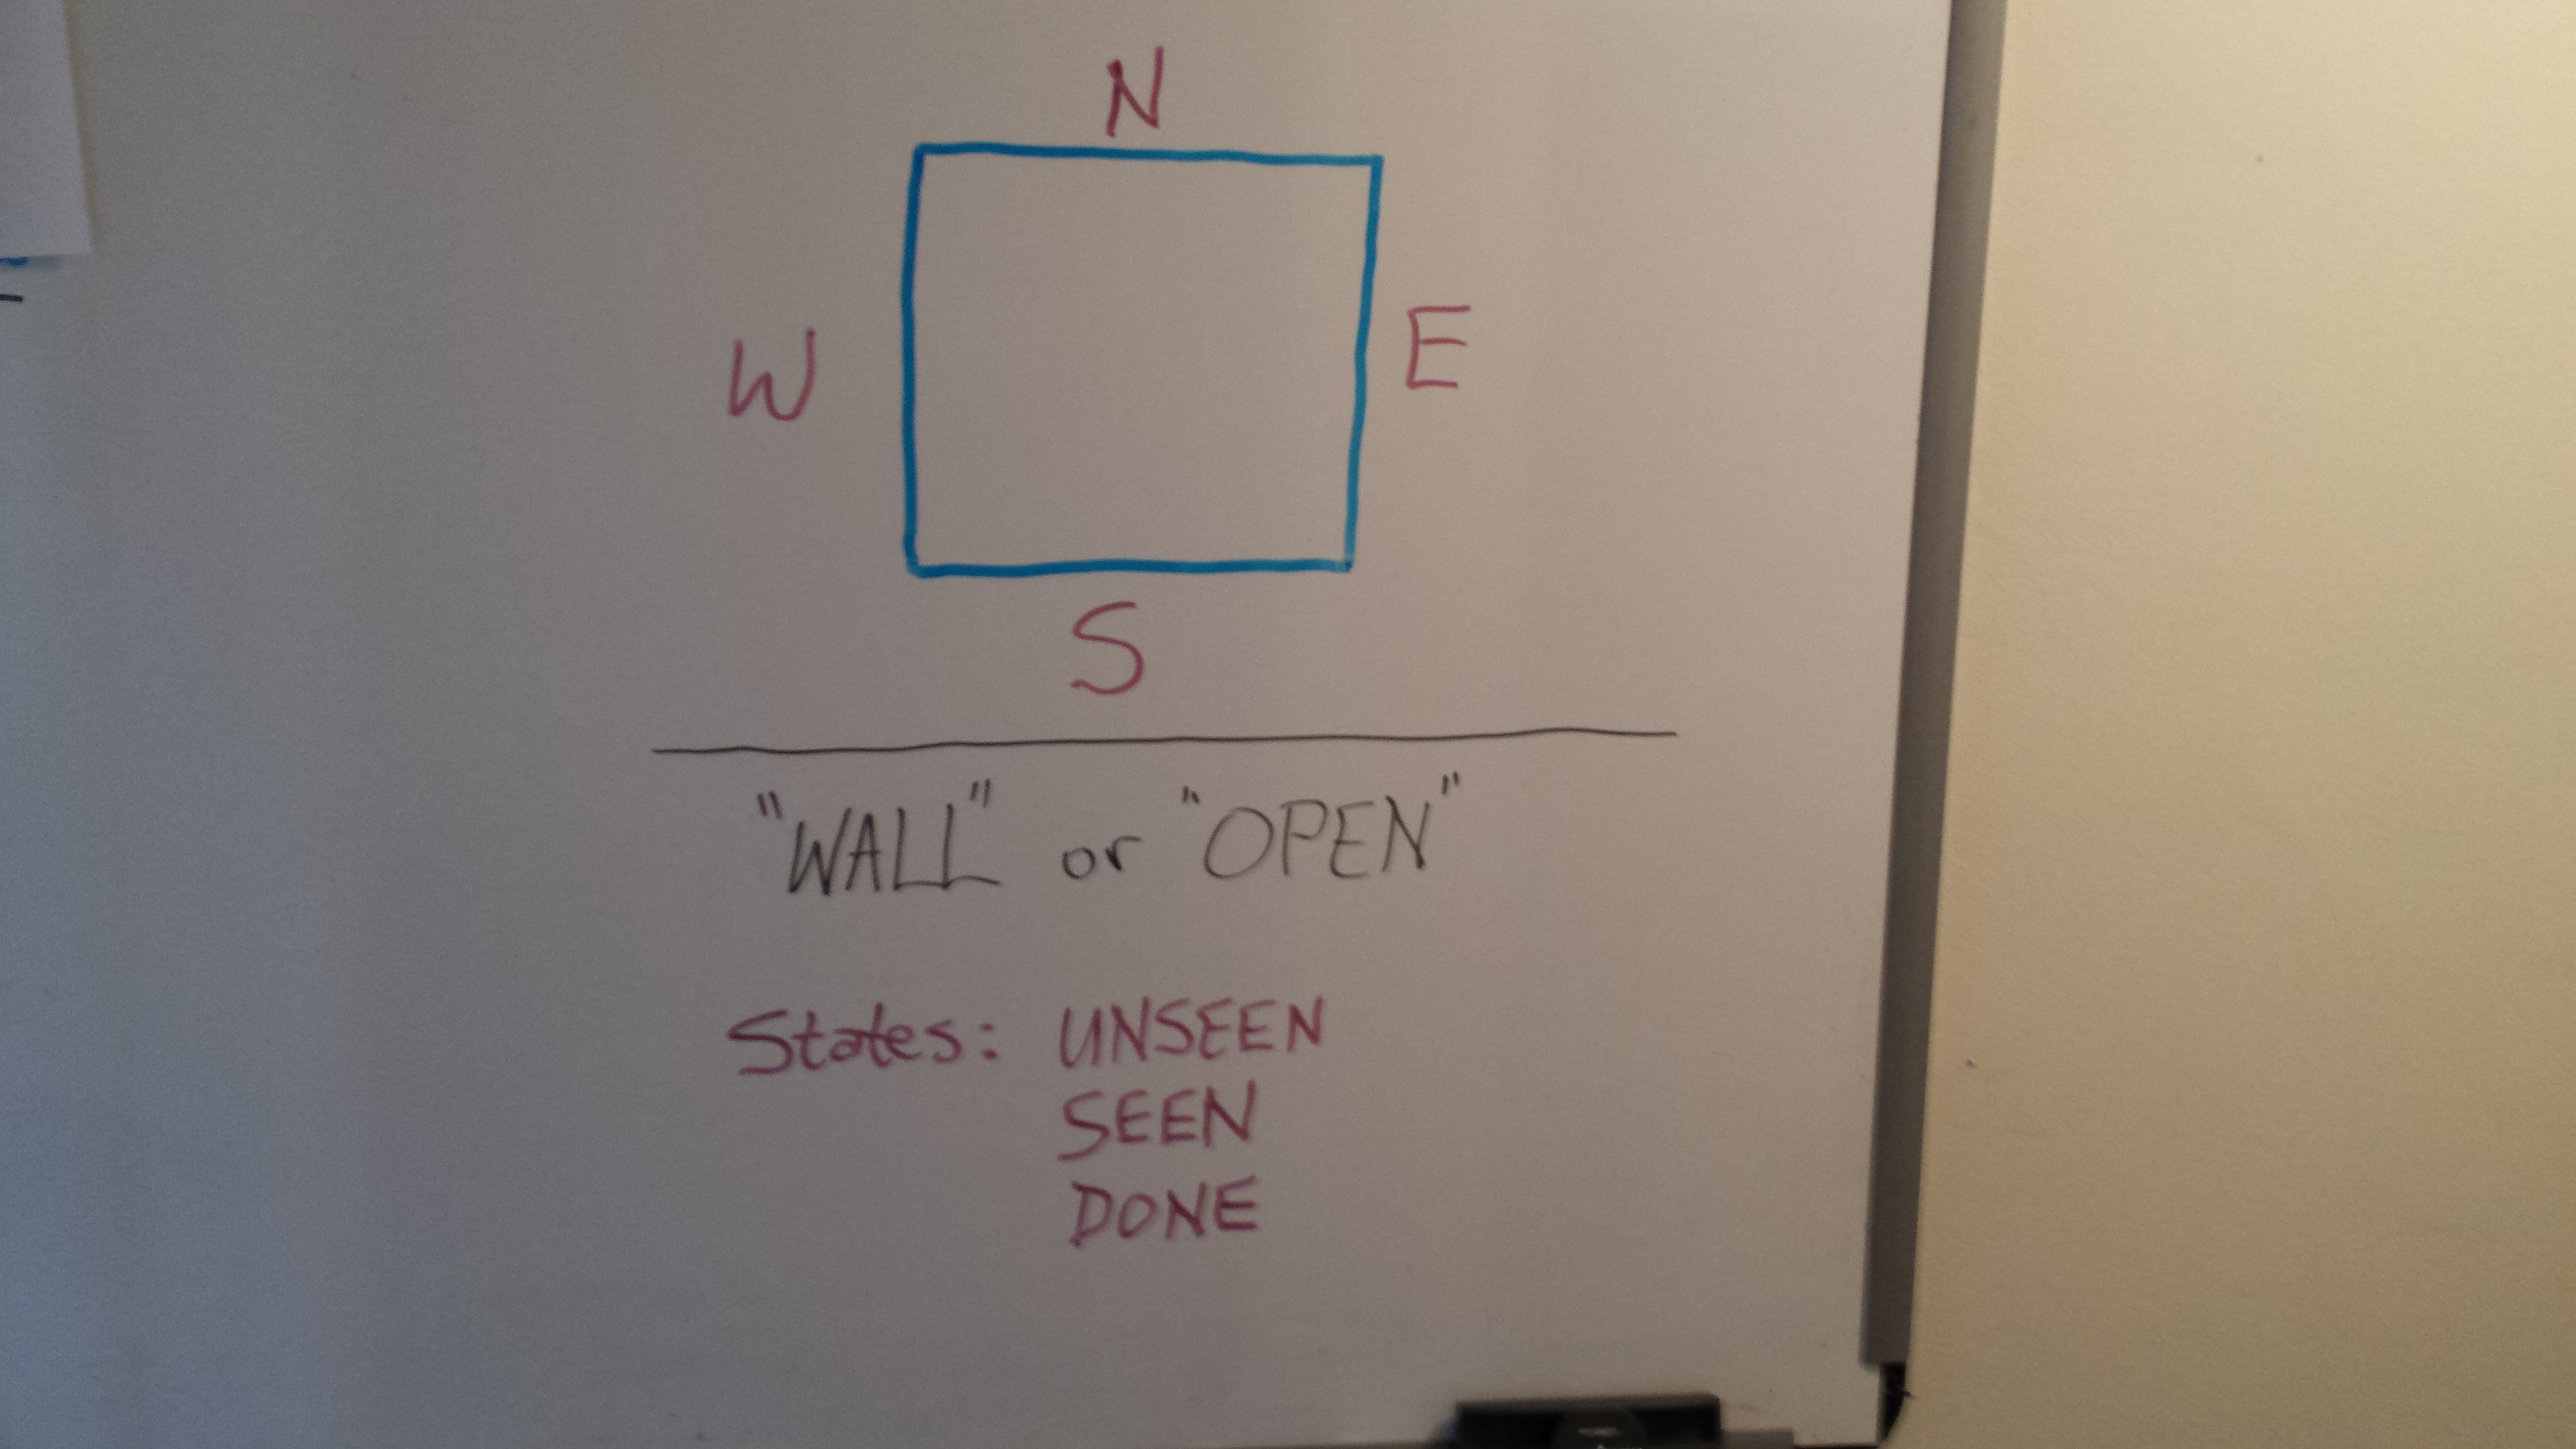 N
W
E
S
"WALL" or "OPEN"
States: UNSEEN
SEEN
DONE